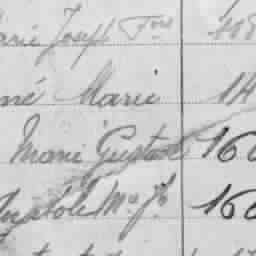 Marie Joseph Fois 408
né Marie 14
Marie Gustave 160
Anatole Me Jh 160